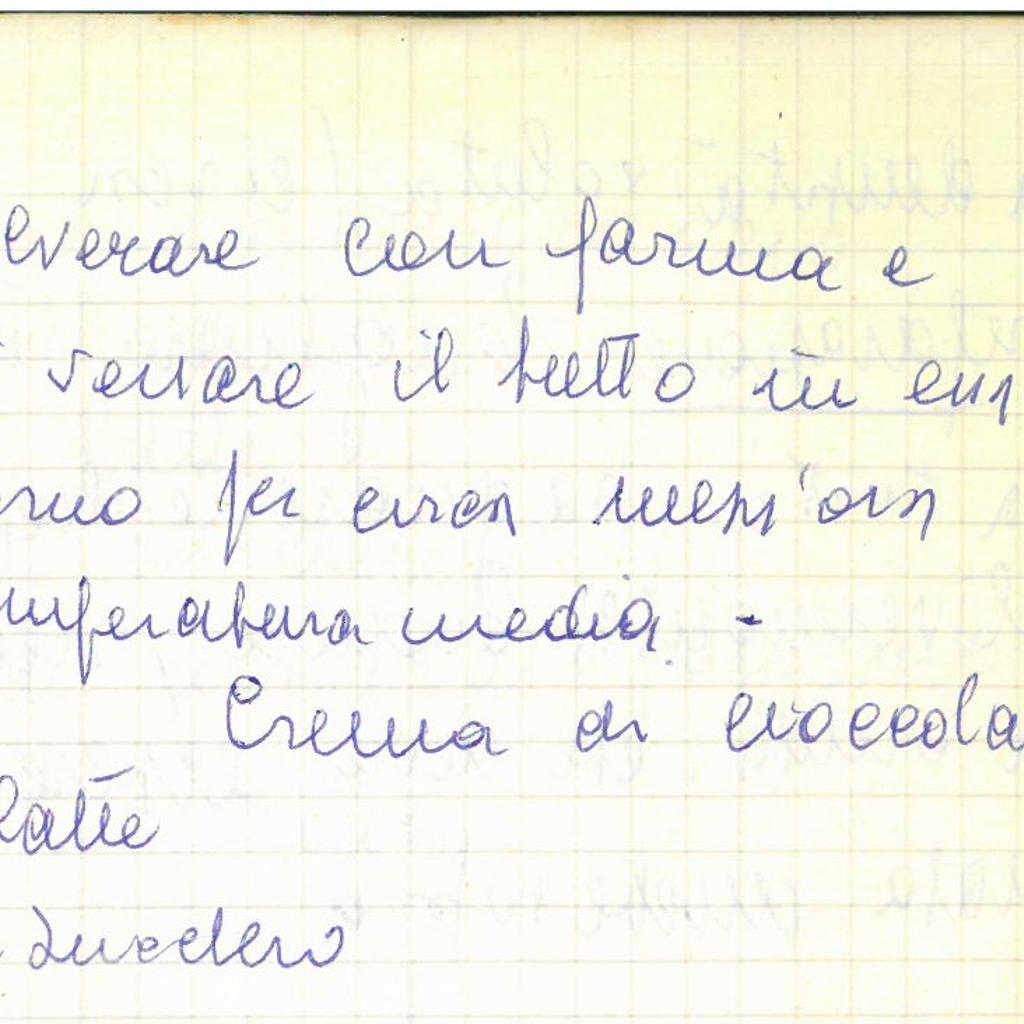 lverare con farina e
i versare il tutto in essa
rno per circa mezz'ora
mperatura media -
Crema di cioccola
latte
zucchero